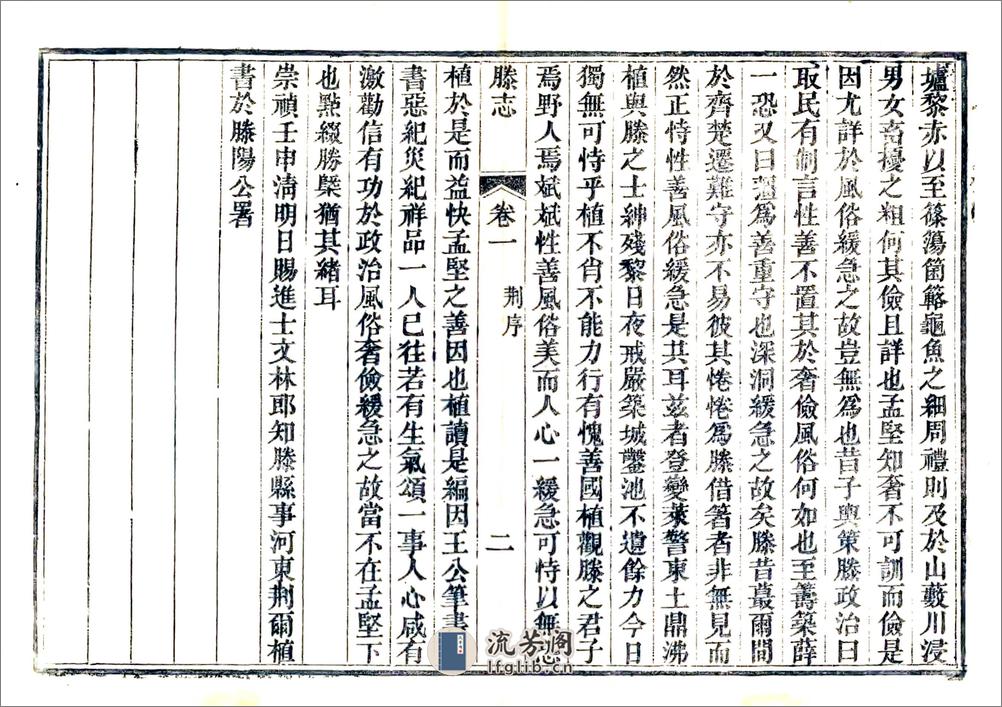 壚黎赤以至篠簜箘簵龜魚之細周禮則及於山藪川浸
男女畜擾之粗何其儉且詳也孟堅知奢不可訓而儉是
因尤詳於風俗緩急之故豈無為也昔子輿策滕政治曰
取民有制言性善不置其於奢儉風俗何如也至籌築薛
一恐又曰彊為善重守也深洞緩急之故矣滕昔蕞爾間
於齊楚遷難守亦不易彼其惓惓為滕借箸者非無見而
然正恃性善風俗緩急是其耳茲者登變萊警東土鼎沸
植與滕之士紳殘黎日夜戒嚴築城鑿池不遺餘力今日
獨無可恃乎植不肖不能力行有愧善國植觀滕之君子
焉野人焉斌斌性善風俗美而人心一緩急可恃以無恐
滕志 卷一 荆序 二
植於是而益快孟堅之善因也植讀是編因王公筆書
書惡紀災紀祥品一人已往若有生氣頌一事人心咸有
激勸信有功於政治風俗奢儉緩急之故當不在孟堅下
也點綴勝槩猶其緒耳
崇禎壬申清明日賜進士文林郎知滕縣事河東荆爾植
書於滕陽公署
流芳阁
lfglib.cn